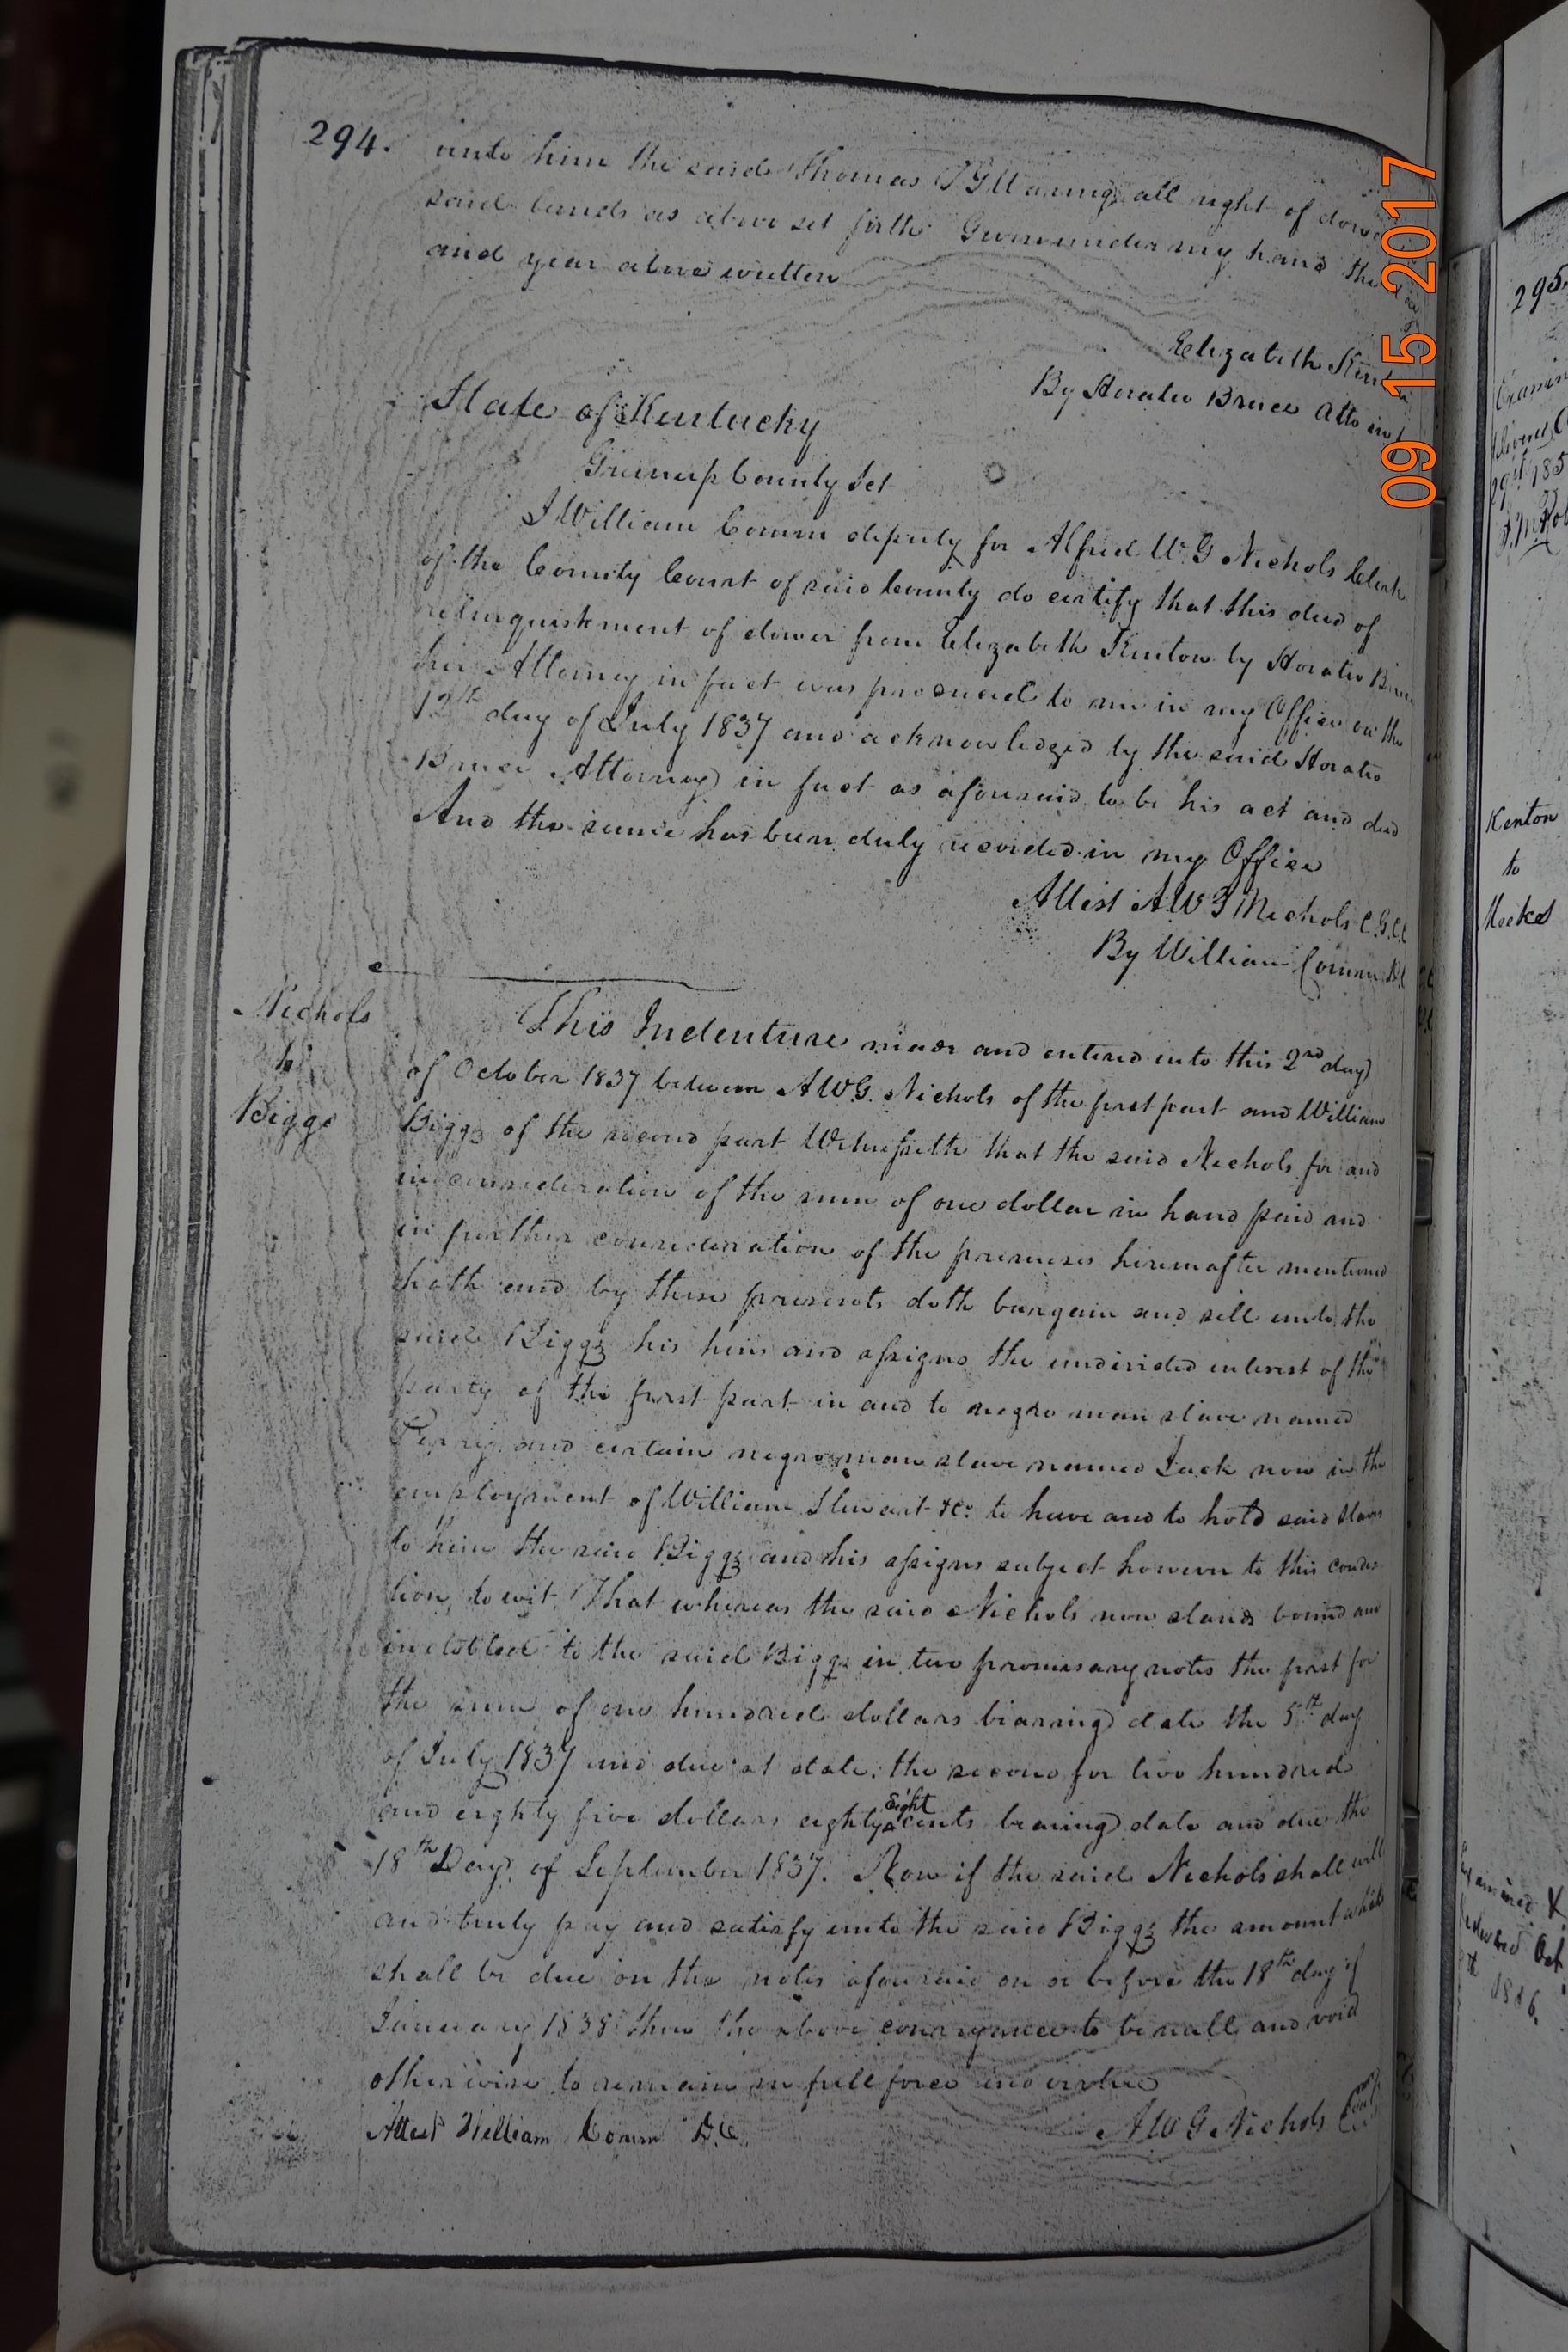 294.
unto him the said Thomas T G Waring all right of dower
said lands as above set forth Given under my hand the day
and year above written
Elizabeth Kenton
By Horatio Bruce Atto in
State of Kentucky
Greenup County Sct
I William Corum deputy for Alfred W. G Nichols Clerk
of the County Court of said County do certify that this deed of
relinquishment of dower from Elizabeth Kinton by Horatio Bruce
her Attorney in fact was produced to me in my Office on the
12th day of July 1837 and acknowledged by the said Horatio
Bruce Attorney in fact as aforesaid to be his act and deed
And the same has been duly recorded in my Office
Attest A W G Nichols C.G.C.C
By William Corum D.C
Nichols
to
Biggs
This Indenture made and entered into this 2nd day
of October 1837 between A W G. Nichols of the first part and William
Biggs of the second part Witnesseth that the said Nichols for and
in consideration of the sum of one dollar in hand paid and
in further consideration of the premises hereinafter mentioned
hath and by these presents doth bargain and sell unto the
said Biggs his heirs and assigns the undivided interest of the
party of the first part in and to negro man slave named
Perry and certain negro man slave named Jack now in the
employment of William Stewart &c. to have and to hold said slaves
to him the said Biggs and his assigns subject however to this condi-
tion, to wit, That whereas the said Nichols now stands bound and
indebted to the said Biggs in two promisary notes the first for
the sum of one hundred dollars bearing date the 5th day
of July 1837 and due at date. the second for two hundred
and eighty five dollars eighty eight cents bearing date and due the
18th Day of September 1837. Now if the said Nichols shall well
and truly pay and satisfy unto the said Biggs the amount which
shall be due on the notes aforesaid on or before the 18th day of
January 1838 then the above conveyance to be null and void
otherwise to remain in full force and virtue
Attest William Corum D.C.
A W G Nichols Seal
09 15 2017
295.
Kenton
to
1816.